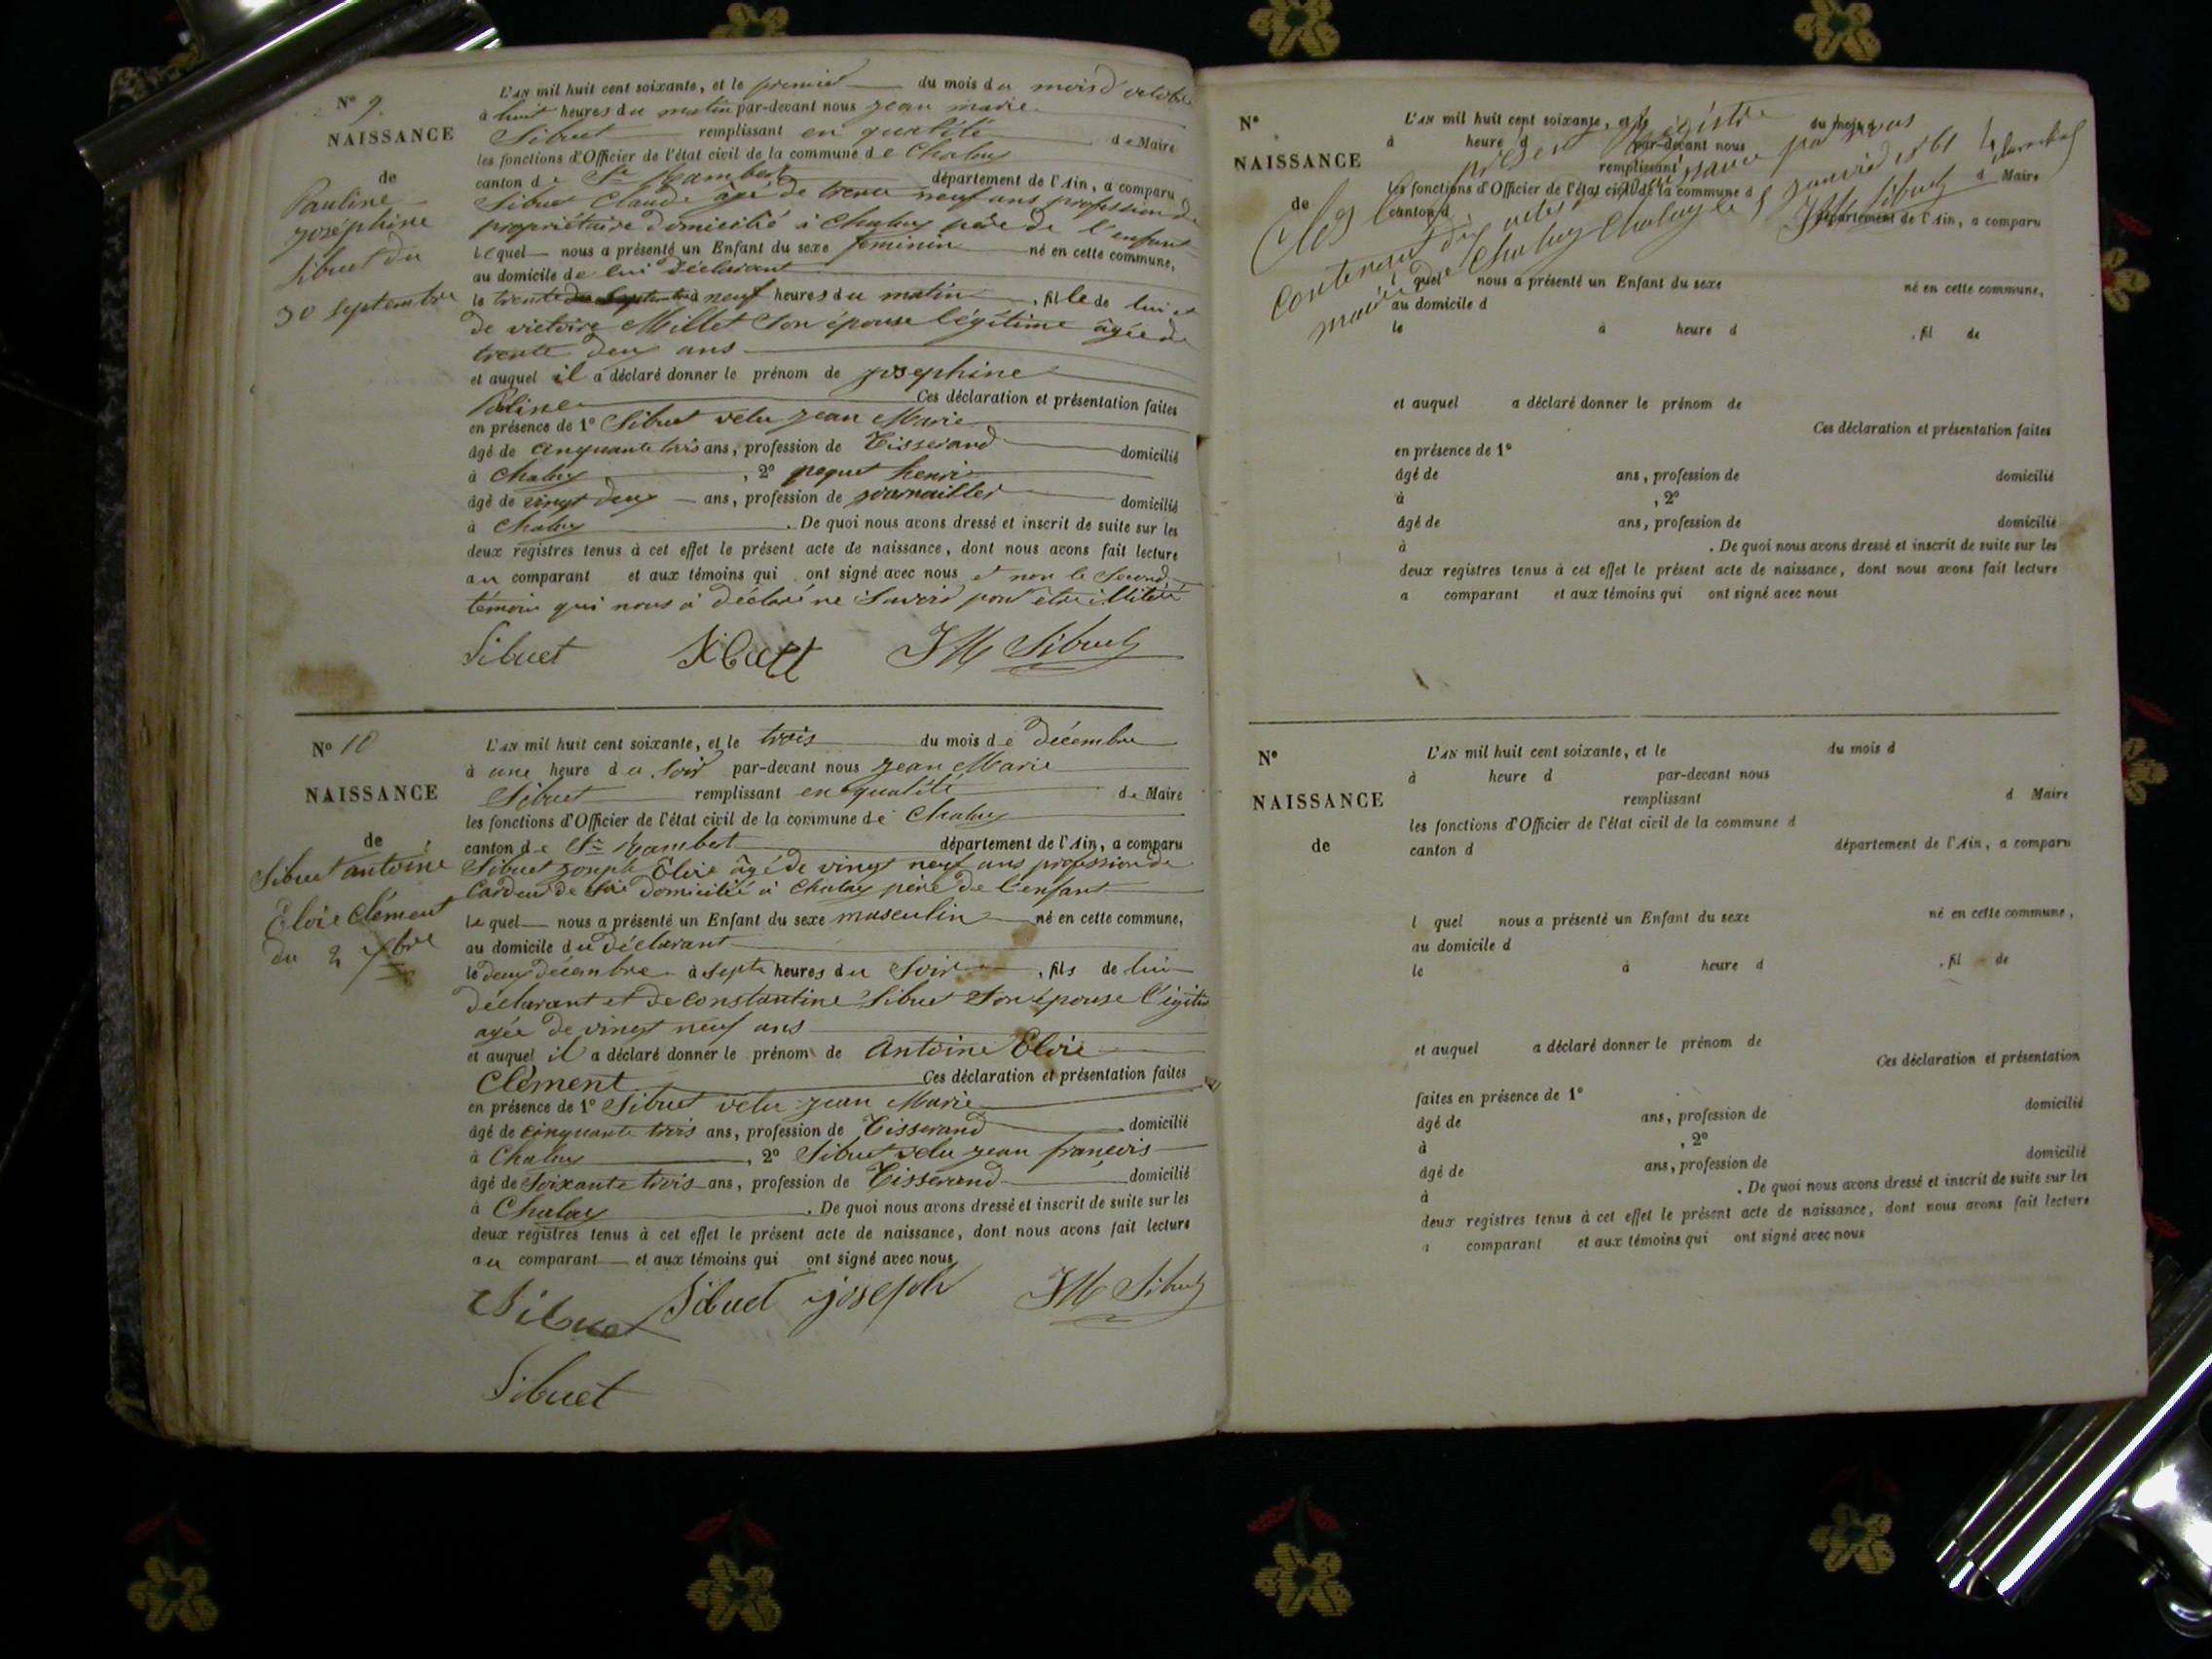 N° 9.
NAISSANCE
de
Pauline
joséphine
Sibuet du
30 septembre
L'AN mil huit cent soixante, et le premier du mois du mois d'octobre
à huit heures du matin par-devant nous jean marie
Sibuet remplissant en qualité de Maire
les fonctions d'Officier de l'état civil de la commune de Chaley
canton de St Rambert département de l'Ain, a comparu
Sibuet Claude âgé de trente neuf ans profession de
propriétaire domicilié à Chaley père de l'enfant
lequel nous a présenté un Enfant du sexe feminin né en cette commune,
au domicile de lui déclarant
le trente neuf heures du matin, fille de lui et
de victoire Millet son épouse légitime âgée de
trente deux ans
et auquel il a déclaré donner le prénom de josephine
Poline Ces déclaration et présentation faites
en présence de 1° Sibuet velu jean Marie
âgé de cinquante trois ans, profession de Tisserand domicilié
à Chaley, 2° henri
âgé de vingt deux ans, profession de journallier domicilié
à Chaley. De quoi nous avons dressé et inscrit de suite sur les
deux registres tenus à cet effet le présent acte de naissance, dont nous avons fait lecture
au comparant et aux témoins qui ont signé avec nous et non le second
témoin qui nous a déclaré ne savoir pour être illitéré
Sibuet JM Sibuet
N° 10
NAISSANCE
de
Sibuet antoine
Eloie Clément
du 2 Xbre
L'AN mil huit cent soixante, et le trois du mois de décembre
à une heure du soir par-devant nous jean Marie
Sibuet remplissant en qualité de Maire
les fonctions d'Officier de l'état civil de la commune de Chaley
canton de St Rambet département de l'Ain, a comparu
Sibuet joseph Eloie âgé de vingt neuf ans profession de
Cardeur de soie domicilié à Chaley père de l'enfant
lequel nous a présenté un Enfant du sexe masculin né en cette commune,
au domicile du déclarant
le deux décembre à septe heures du soir, fils de lui
déclarant et de constantine Sibuet son épouse légitime
agée de vingt neuf ans
et auquel il a déclaré donner le prénom de Antoine Eloie
Clément Ces déclaration et présentation faites
en présence de 1° Sibuet velu jean Marie
âgé de cinquante trois ans, profession de Tisserand domicilié
à Chaley, 2° Sibuet velu jean françois
âgé de soixante trois ans, profession de Tisserand domicilié
à Chaley. De quoi nous avons dressé et inscrit de suite sur les
deux registres tenus à cet effet le présent acte de naissance, dont nous avons fait lecture
au comparant et aux témoins qui ont signé avec nous
Sibuet Sibuet joseph JM Sibuet
Sibuet
N°
NAISSANCE
de
L'AN mil huit cent soixante, et le du mois d
à heure d par-devant nous
remplissant d Maire
les fonctions d'Officier de l'état civil de la commune d
canton d département de l'Ain, a comparu
Clos le présent registre
contenant dix actes de naissance par nous
maire de Chaley Chaley le 5 janvier 1861
JM Sibuet
l quel nous a présenté un Enfant du sexe né en cette commune,
au domicile d
le à heure d , fil de
et auquel a déclaré donner le prénom de
Ces déclaration et présentation faites
en présence de 1°
âgé de ans, profession de domicilié
à , 2°
âgé de ans, profession de domicilié
à . De quoi nous avons dressé et inscrit de suite sur les
deux registres tenus à cet effet le présent acte de naissance, dont nous avons fait lecture
a comparant et aux témoins qui ont signé avec nous
N°
NAISSANCE
de
L'AN mil huit cent soixante, et le du mois d
à heure d par-devant nous
remplissant d Maire
les fonctions d'Officier de l'état civil de la commune d
canton d département de l'Ain, a comparu
l quel nous a présenté un Enfant du sexe né en cette commune,
au domicile d
le à heure d , fil de
et auquel a déclaré donner le prénom de
Ces déclaration et présentation
faites en présence de 1°
âgé de ans, profession de domicilié
à , 2°
âgé de ans, profession de domicilié
à . De quoi nous avons dressé et inscrit de suite sur les
deux registres tenus à cet effet le présent acte de naissance, dont nous avons fait lecture
a comparant et aux témoins qui ont signé avec nous